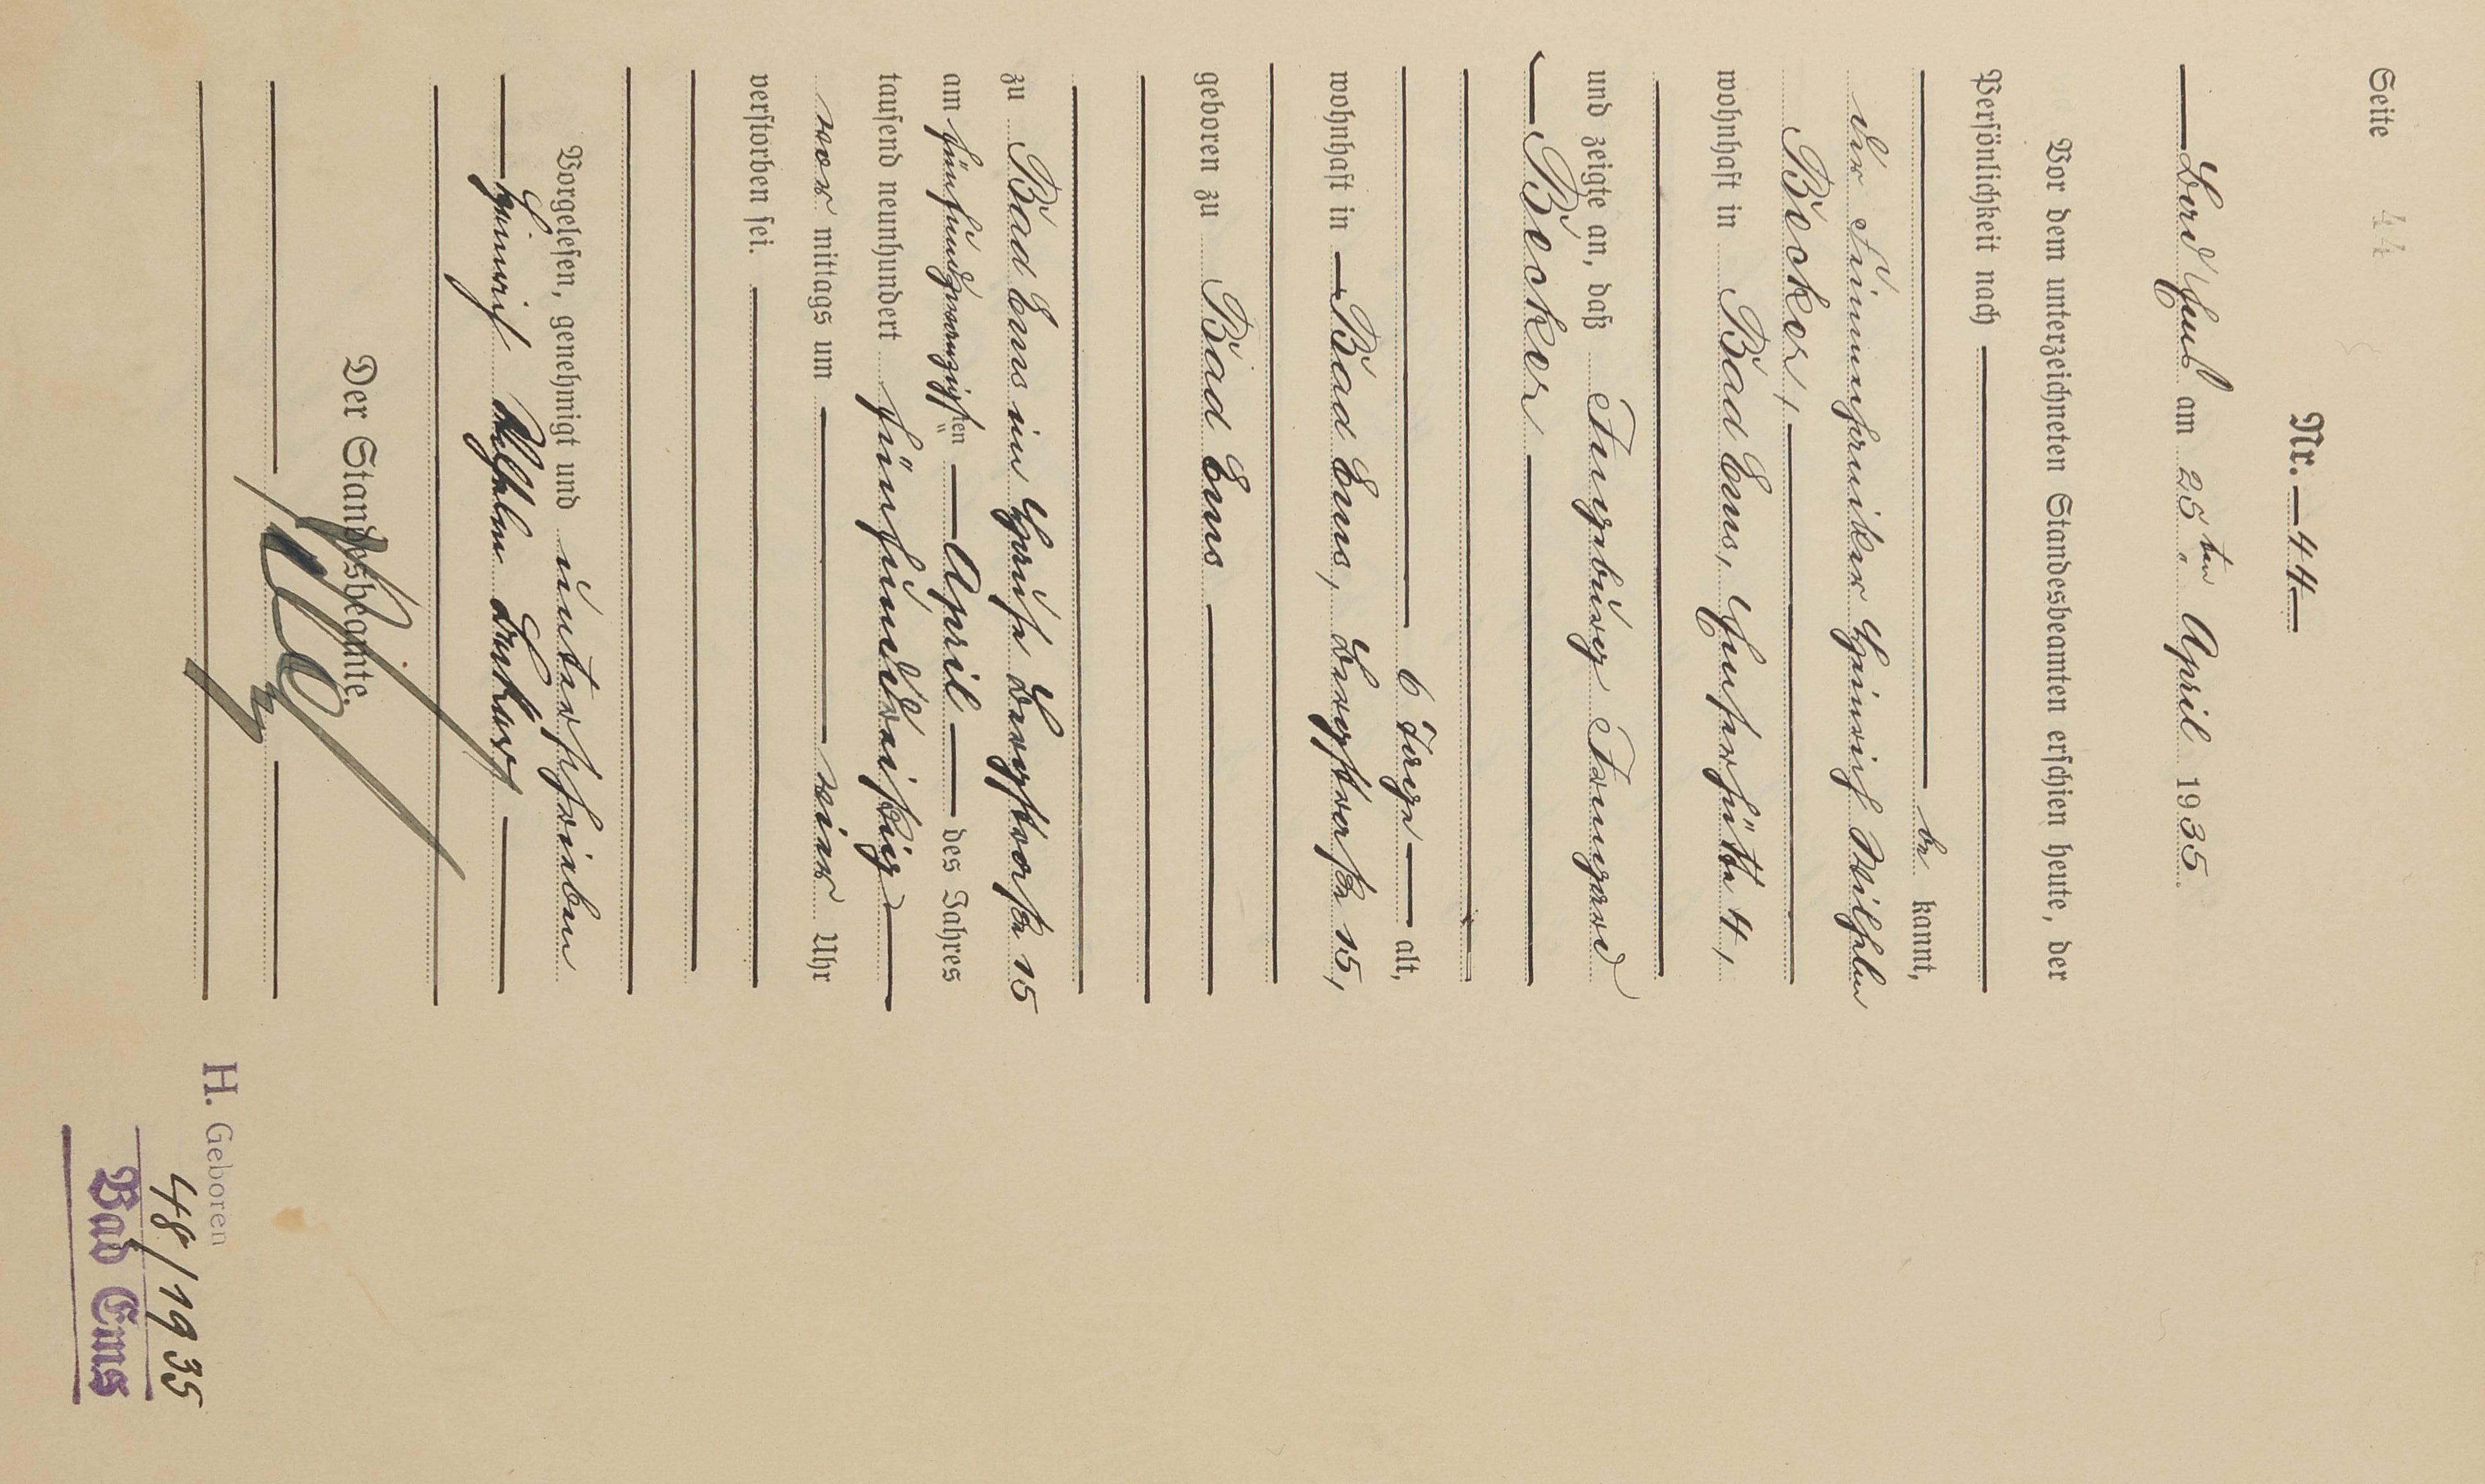 Seite 44
Nr. 44
Bad Ems am 25ten April 1935.
Vor dem unterzeichneten Standesbeamten erschien heute, der
Persönlichkeit nach
be kannt,
der Heinrich Wilhelm
Becker,
wohnhaft in Bad Ems, 4,
und zeigte an, daß Ingeburg Irmgard
Becker
6 Tage alt,
wohnhaft in Bad Ems, Bergstraße 15,
geboren zu Bad Ems
zu Bad Ems im Hause Bergstraße 15
am fünfundzwanzigsten April des Jahres
tausend neunhundert fünfunddreißig
vor mittags um vier Uhr
verstorben sei.
Vorgelesen, genehmigt und unterschrieben
Heinrich Wilhelm Becker
Der Standesbeamte.
H. Geboren
48/1935
Bad Ems